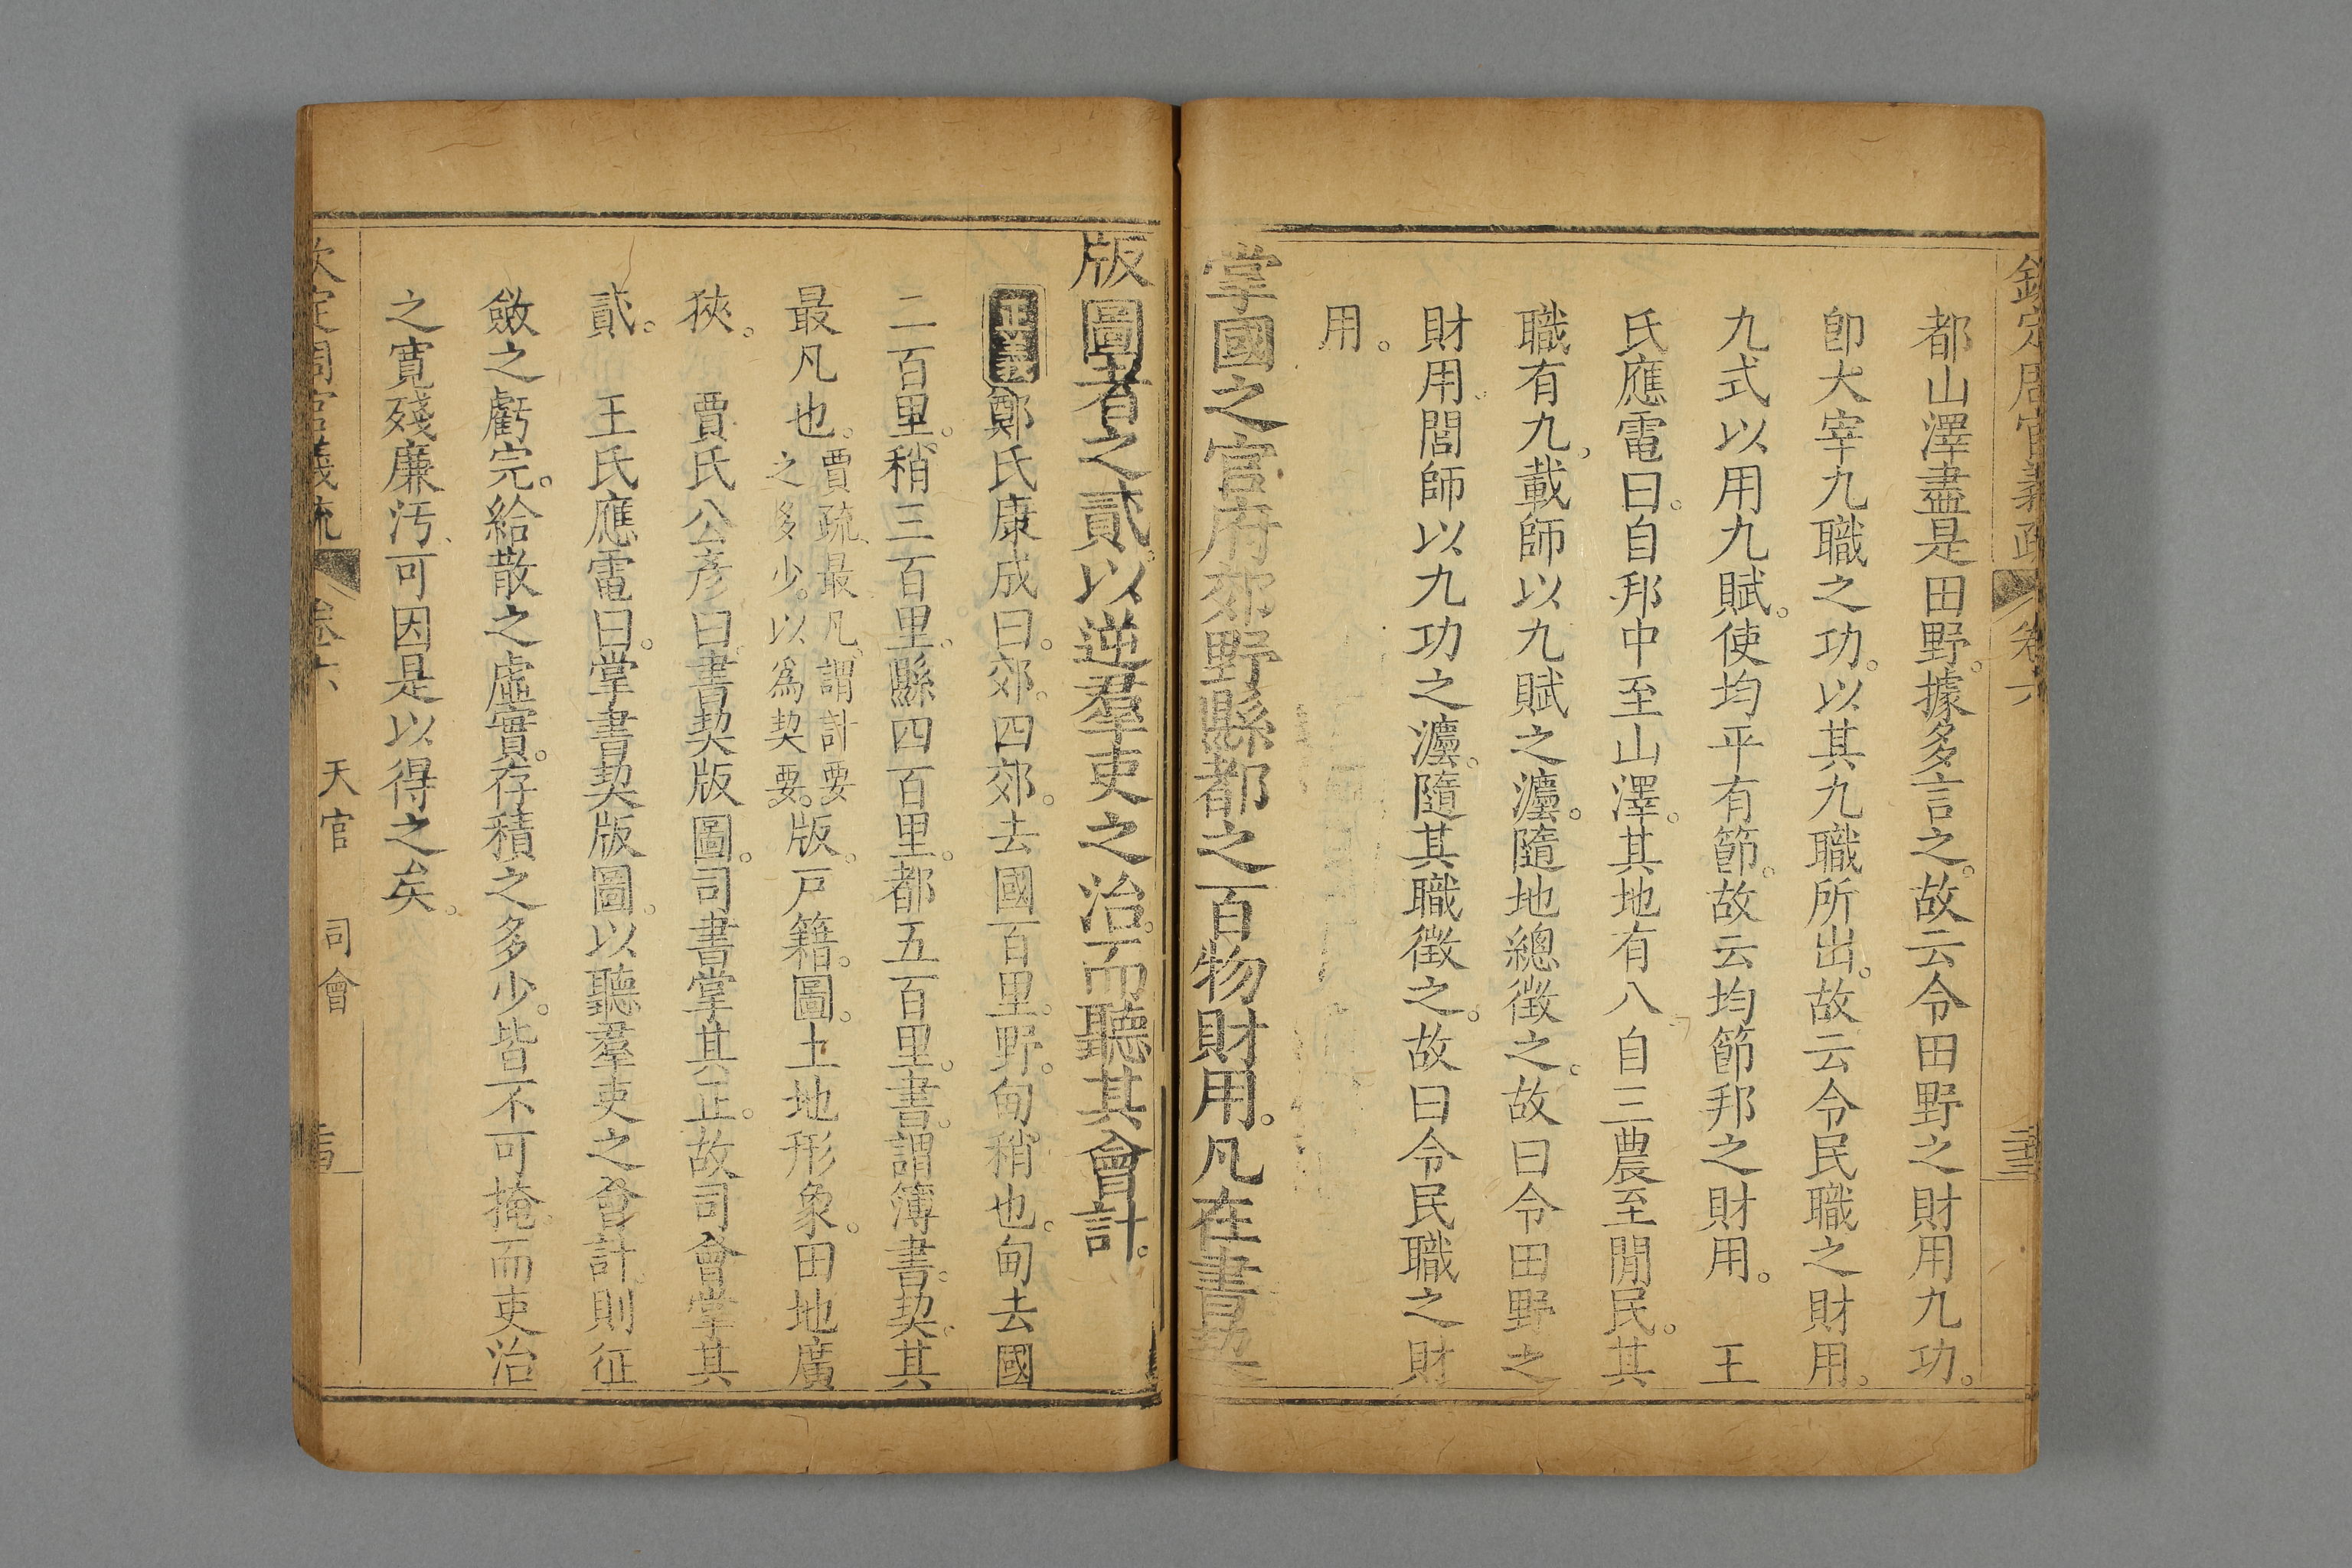 欽定周官義疏 卷六
都山澤盡是田野。據多言之。故云令田野之財用九功。
卽大宰九職之功。以其九職所出。故云令民職之財用。
九式以用九賦。使均平有節。故云均節邦之財用。 王
氏應電曰。自邦中至山澤。其地有八自三農至閒民。其
職有九。載師以九賦之灋。隨地總徵之。故曰令田野之
財用。閭師以九功之灋。隨其職徵之。故曰令民職之財
用。
掌國之官府郊野縣都之百物財用。凡在書契
版圖者之貳。以逆羣吏之治。而聽其會計。
正義鄭氏康成曰。郊。四郊。去國百里。野。甸稍也。甸去國
二百里。稍三百里。縣四百里。都五百里。書。謂簿書。契。其
最凡也。賈疏、最凡。謂計要
之多少。以爲契要。版。戸籍。圖。土地形象。田地廣
狹。 賈氏公彥曰。書契版圖。司書掌其正。故司會掌其
貳。 王氏應電曰。掌書契版圖。以聽羣吏之會計。則征
斂之虧完。給散之虛實。存積之多少。皆不可掩。而吏治
之寬殘廉汚、可因是以得之矣。
欽定周官義疏 卷六 天官 司會